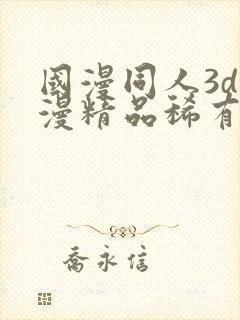 國漫同人3d
漫精品稀有
喬永信